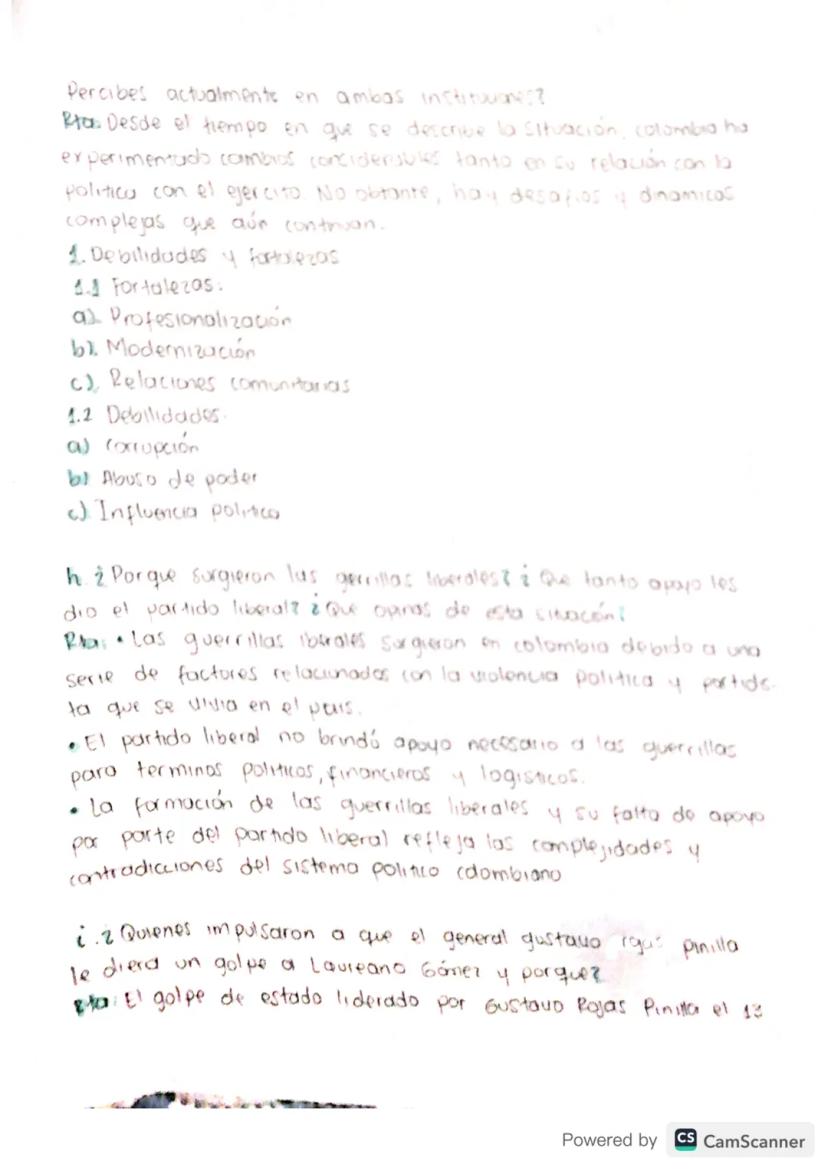 Percibes actualmente en ambas instituciones?
Rta: Desde el tiempo en que se describe la situación, colombia ha
experimentado cambios conciderables tanto en su relación con la
politica con el ejercito. No obtante, hay desafios y dinamicas
complejas que aún continuan.
1. Debilidades y fortalezas
1.1 Fortalezas:
a). Profesionalización
b). Modernización
c). Relaciones comunitarias
1.2 Debilidades.
a) Corrupción
b) Abuso de poder
c) Influencia politica
h. ¿Porque surgieron las guerrillas liberales? ¿Que tanto apoyo les
dio el partido liberal? ¿Que opinas de esta situación?
Rta: • Las guerrillas liberales surgieron en colombia debido a una
serie de factores relacionados con la violencia politica y partidis-
ta que se vivia en el pais.
• El partido liberal no brindó apoyo necesario a las guerrillas
para terminos politicos, financieros y logisticos.
• La formación de las guerrillas liberales y su falta de apoyo
por parte del partido liberal refleja las complejidades y
contradicciones del sistema politico colombiano
i. ¿Quienes impulsaron a que el general gustavo rojas pinilla
le diera un golpe a Laureano Gómez y porque?
Rta: El golpe de estado liderado por Gustavo Rojas Pinilla el 13
Powered by CS CamScanner